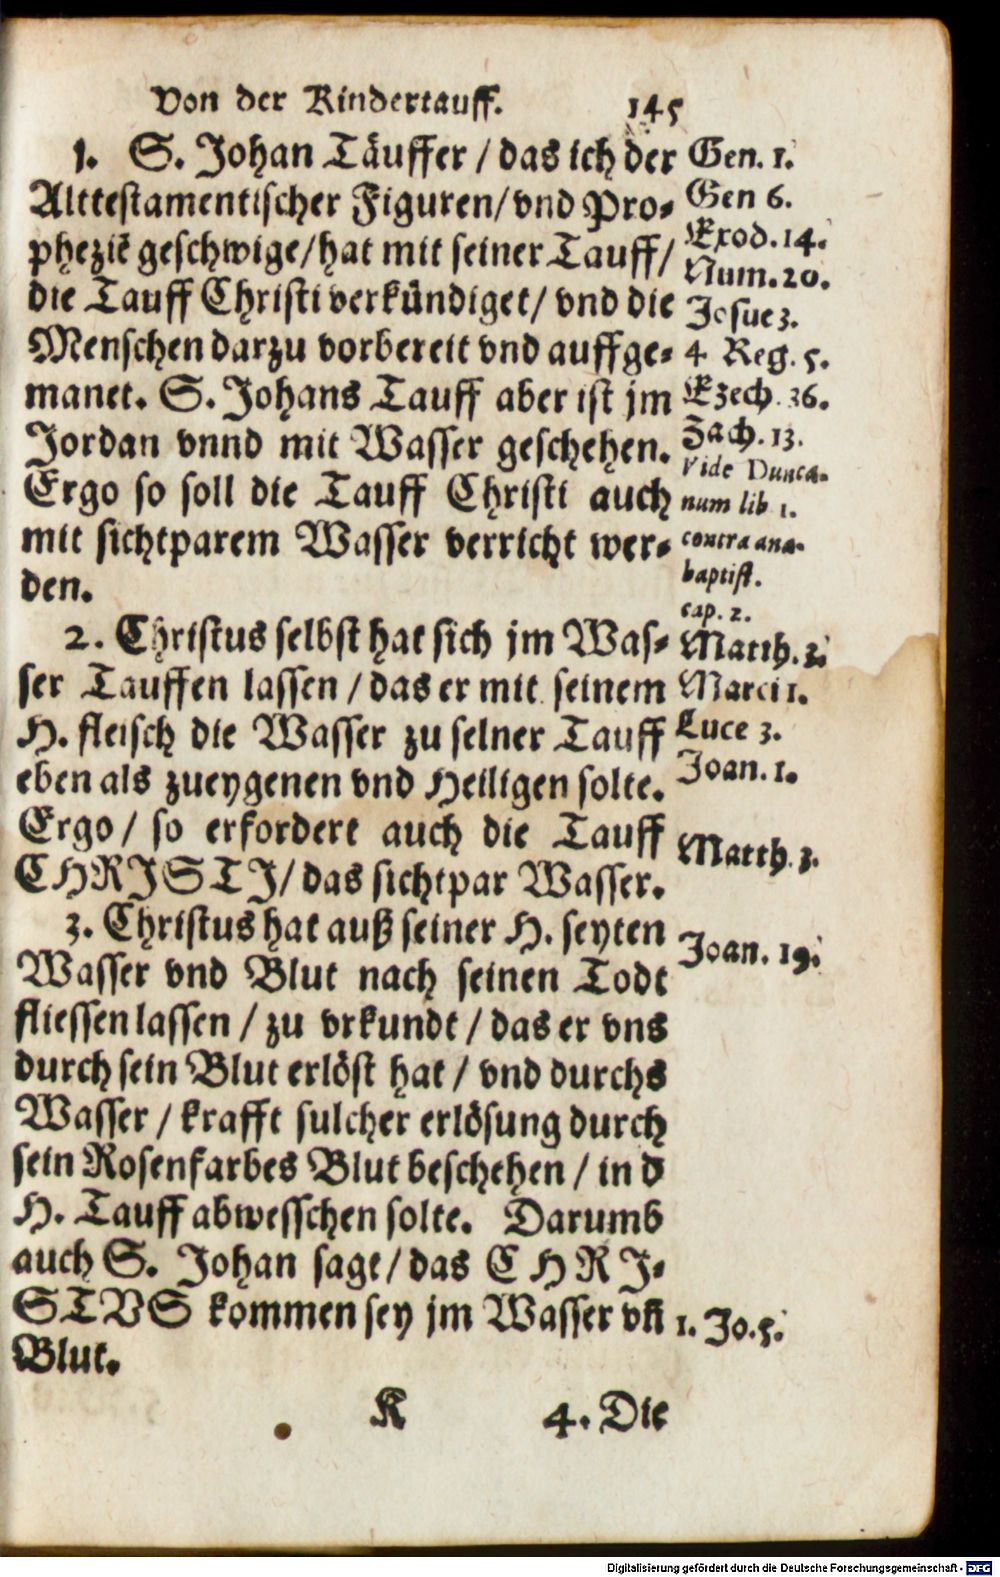 Von der Kindertauff. 145
1. S. Johan Täuffer / das ich der
Alttestamentischer Figuren / vnd Pro-
pheziē geschwige / hat mit seiner Tauff /
die Tauff Christi verkündiget / vnd die
Menschen darzu vorbereit vnd auffge-
manet. S. Johans Tauff aber ist jm
Jordan vnnd mit Wasser geschehen.
Ergo so soll die Tauff Christi auch
mit sichtparem Wasser verricht wer-
den.
2. Christus selbst hat sich jm Was-
ser Tauffen lassen / das er mit seinem
H. fleisch die Wasser zu seiner Tauff
eben als zueygenen vnd Heiligen solte.
Ergo / so erfordert auch die Tauff
CHRISTI / das sichtpar Wasser.
3. Christus hat auß seiner H. seyten
Wasser vnd Blut nach seinen Todt
fliessen lassen / zu vrkundt / das er vns
durch sein Blut erlöst hat / vnd durchs
Wasser / krafft sulcher erlösung durch
sein Rosenfarbes Blut beschehen / in d
H. Tauff abwesschen solte. Darumb
auch S. Johan sagt / das CHRI-
STVS kommen sey jm Wasser vñ
Blut.
Gen. 1.
Gen 6.
Exod. 14.
Num. 20.
Josue 3.
4 Reg. 5.
Ezech. 36.
Zach. 13.
Vide Dunca-
num lib 1.
contra ana-
baptist.
cap. 2.
Matth. 3.
Marci 1.
Luce 3.
Joan. 1.
Matth. 3.
Joan. 19.
1. Jo. 5.
K 4. Die
Digitalisierung gefördert durch die Deutsche Forschungsgemeinschaft - DFG